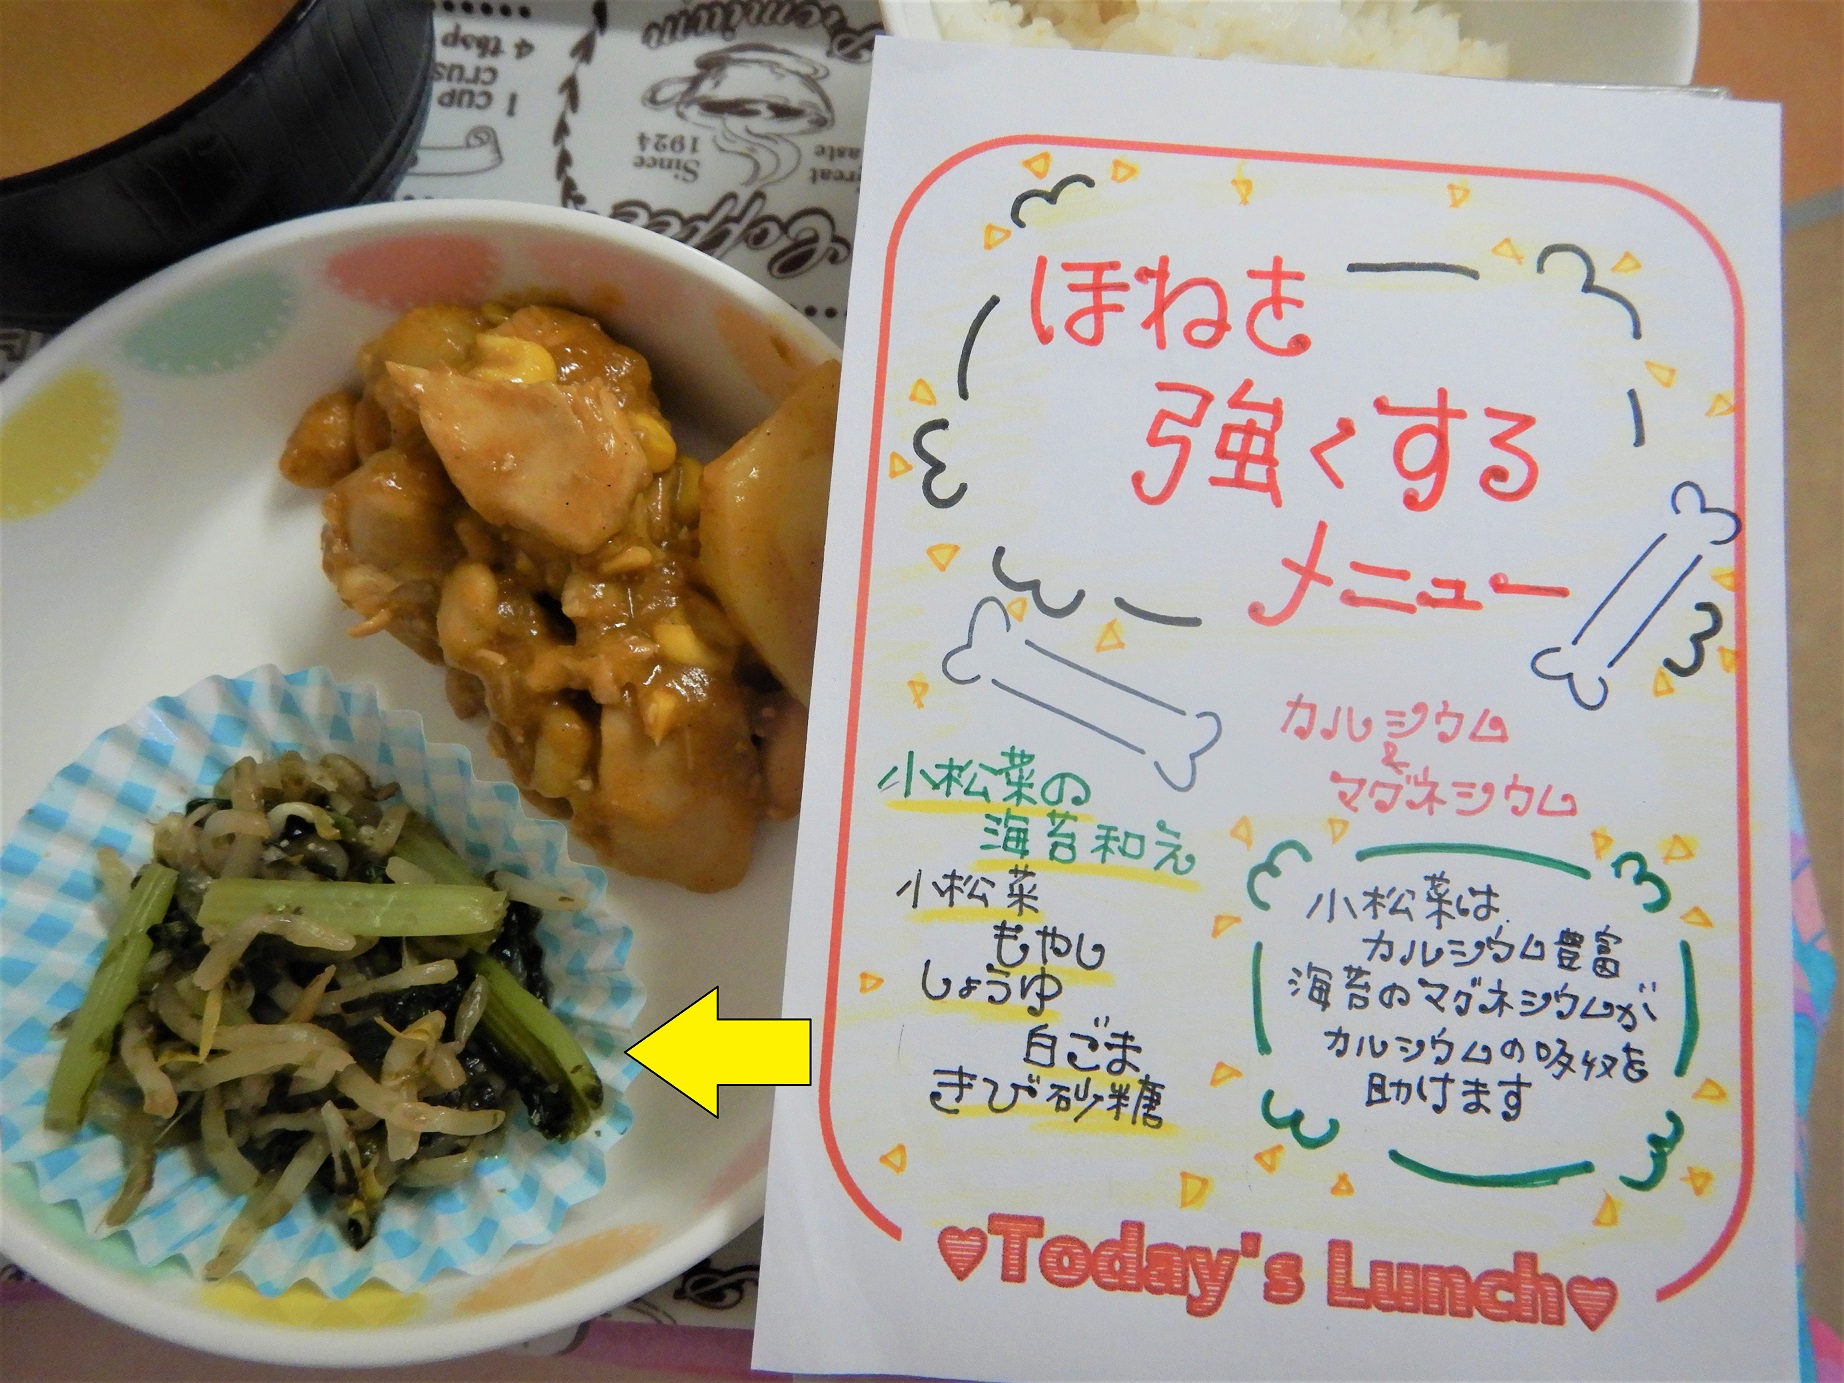 Premium
4 tbsp
crus
1 cup
Since
1924
taste
Coffee
ほねを
強くする
メニュー
カルシウム
&
マグネシウム
小松菜の
海苔和え
小松菜
もやし
しょうゆ
白ごま
きび砂糖
小松菜は
カルシウム豊富
海苔のマグネシウムが
カルシウムの吸収を
助けます
♥Today's Lunch♥